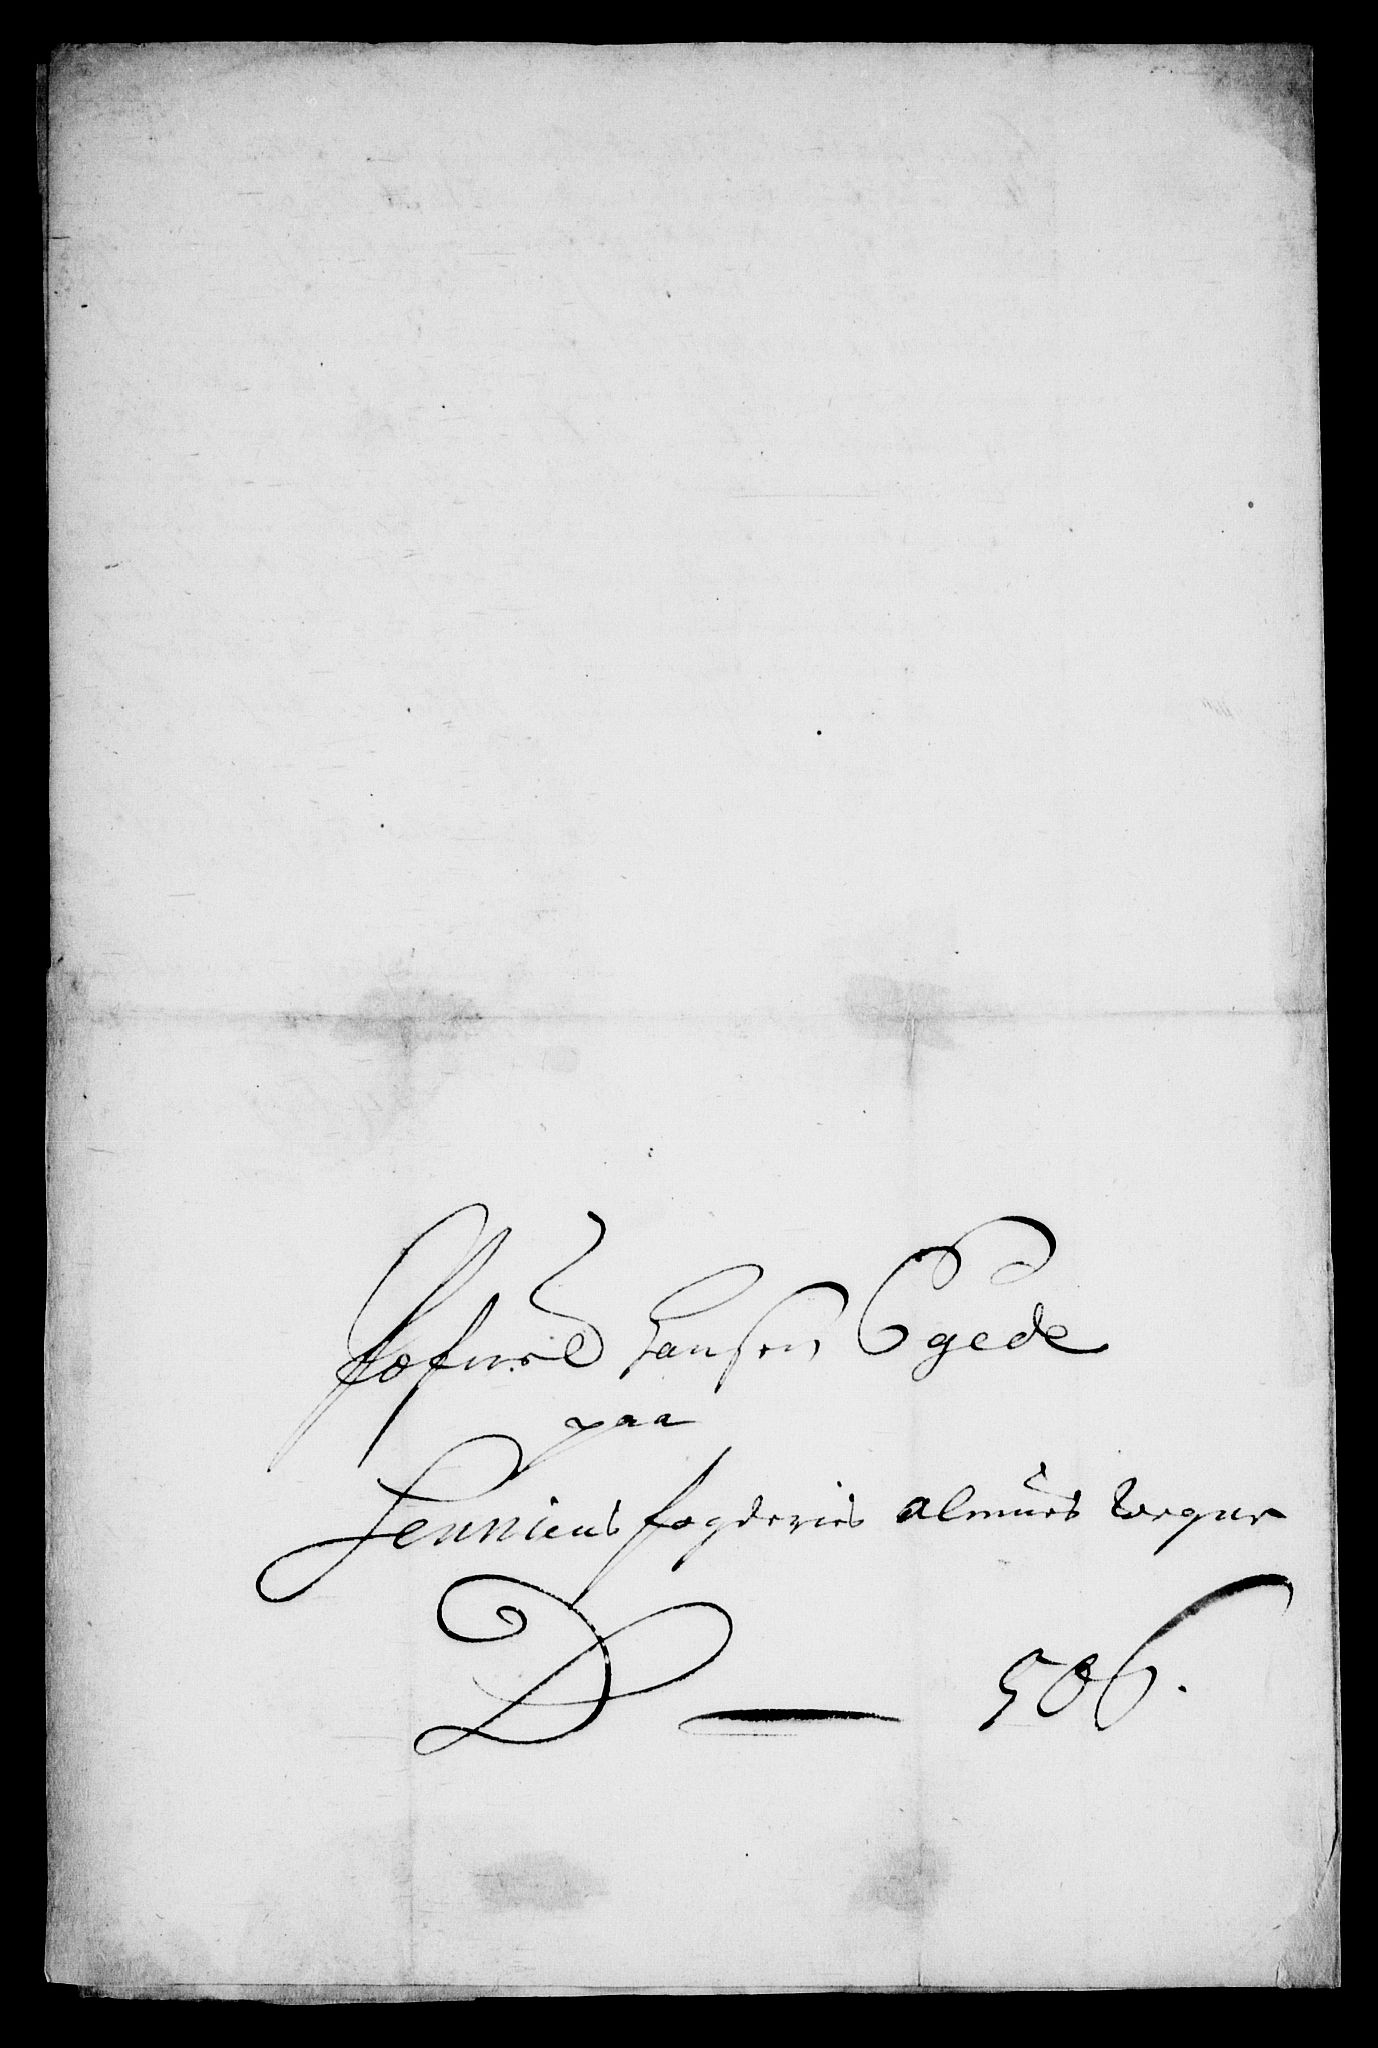 Pofuel Hansen Egede
paa
Senniens fogderies almues vegne
D — 506.